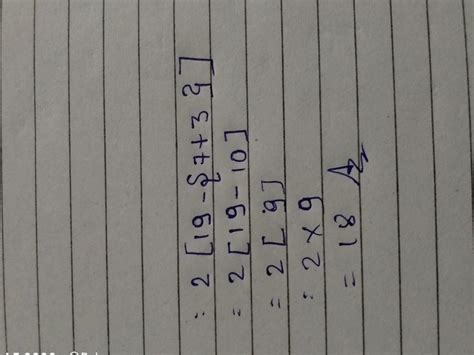 = 2 [19 - {7+3}]
= 2 [19 - 10]
= 2 [9]
= 2 × 9
= 18